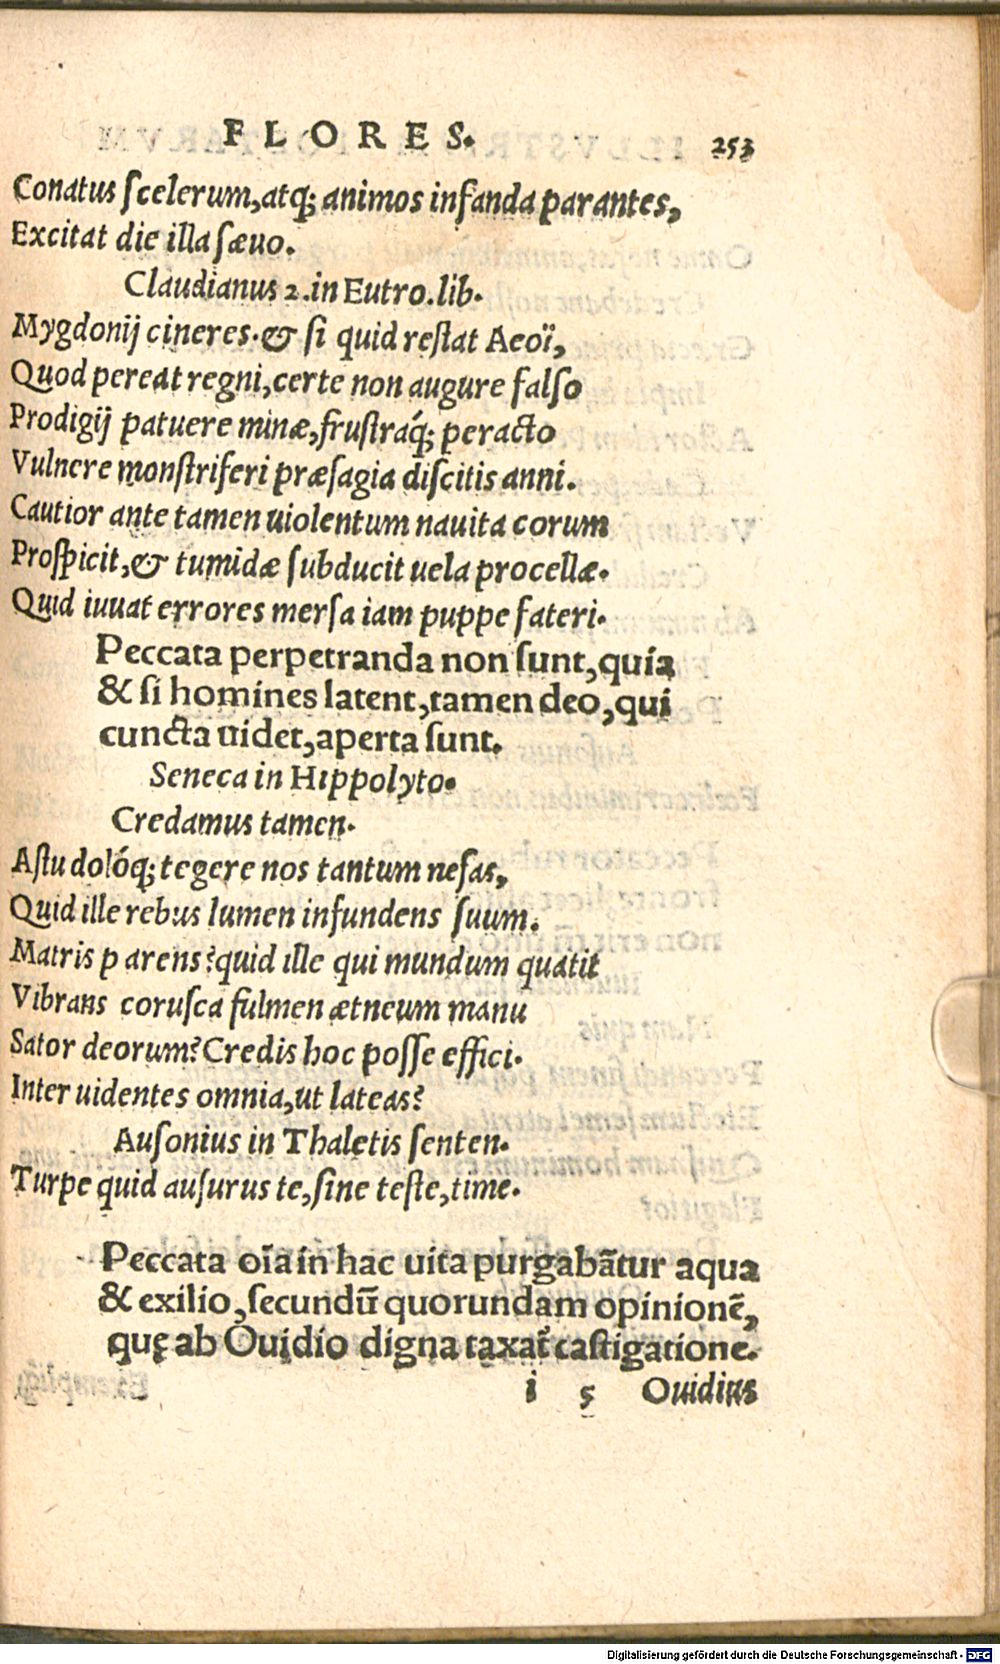 FLORES. 253
Conatus ſcelerum, atq; animos infanda parantes,
Excitat die illa ſæuo.
Claudianus 2. in Eutro. lib.
Mygdonij cineres. & ſi quid reſtat Aeoï,
Quod pereat regni, certe non augure falſo
Prodigij patuere minæ, fruſtraq́; peracto
Vulnere monſtriferi præſagia diſcitis anni.
Cautior ante tamen uiolentum nauita corum
Proſpicit, & tumidæ ſubducit uela procellæ.
Quid iuuat errores merſa iam puppe fateri.
Peccata perpetranda non ſunt, quia
& ſi homines latent, tamen deo, qui
cuncta uidet, aperta ſunt.
Seneca in Hippolyto.
Credamus tamen.
Aſtu dolóq; tegere nos tantum nefas,
Quid ille rebus lumen infundens ſuum.
Matris p arens? quid ille qui mundum quatit
Vibrans coruſca fulmen ætneum manu
Sator deorum? Credis hoc poſſe effici.
Inter uidentes omnia, ut lateas?
Auſonius in Thaletis ſenten.
Turpe quid auſurus te, ſine teſte, time.
Peccata oīa in hac uita purgabātur aqua
& exilio, ſecundū quorundam opinionē,
quę ab Ouidio digna taxat᷑ caſtigatione.
i 5 Ouidius
Digitalisierung gefördert durch die Deutsche Forschungsgemeinschaft - DFG